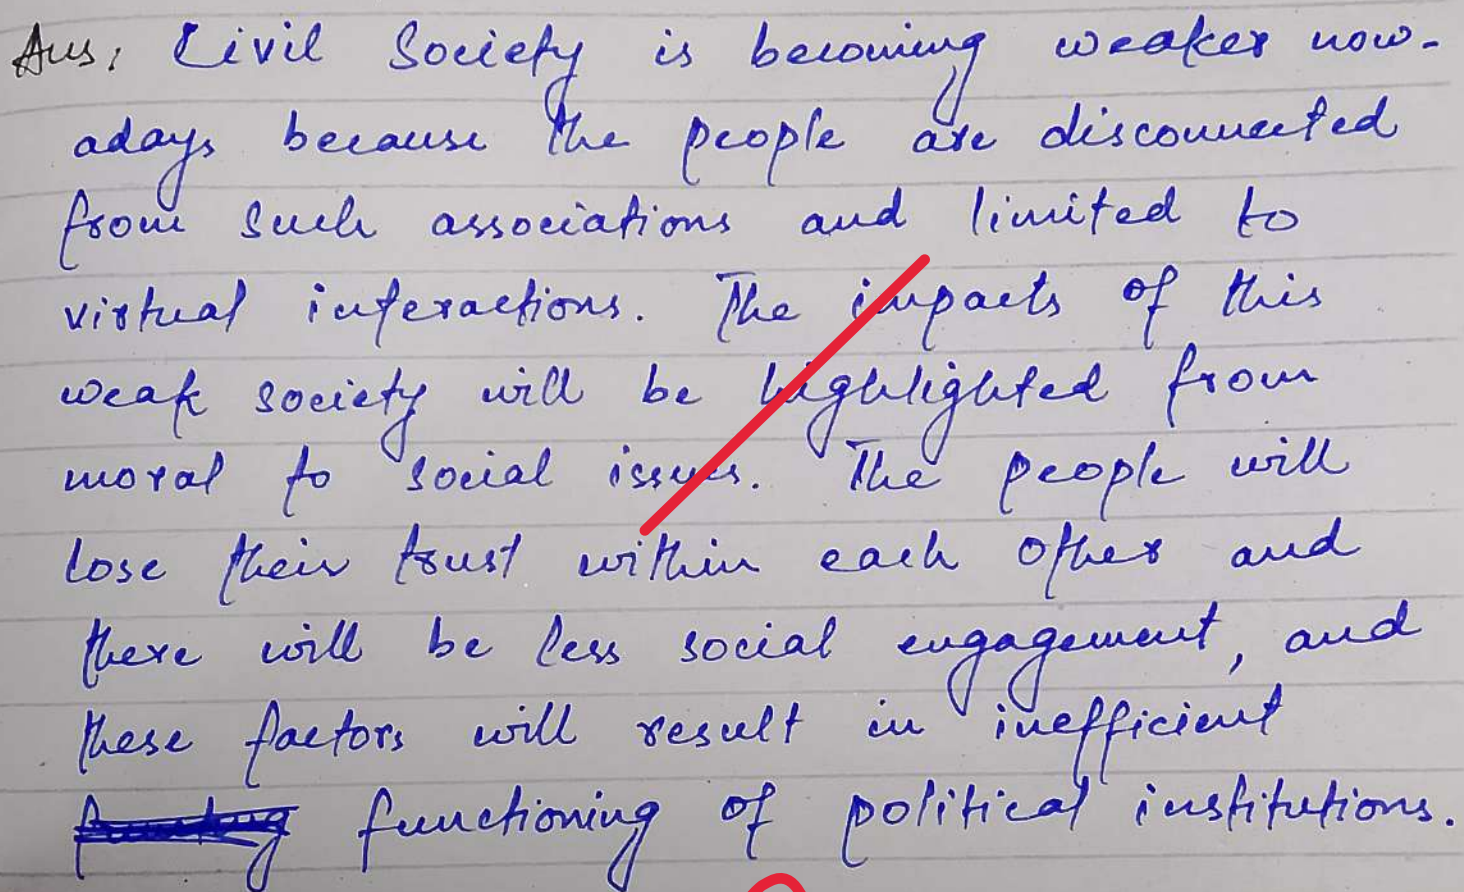 Ans: Civil Society is becoming weaker now-
adays because the people are disconnected
from such associations and limited to
virtual interactions. The impacts of this
weak society will be highlighted from
moral to social issues. The people will
lose their trust within each other and
there will be less social engagement, and
these factors will result in inefficient
functioning of political institutions.